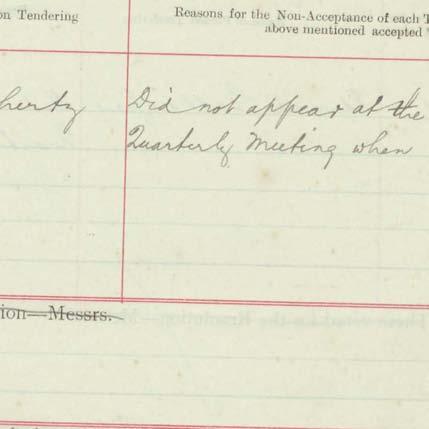 on Tendering
Reasons for the Non-Acceptance of each T
above mentioned accepted
herty
Did not appear at the
Quarterly Meeting when
ion—Messrs.